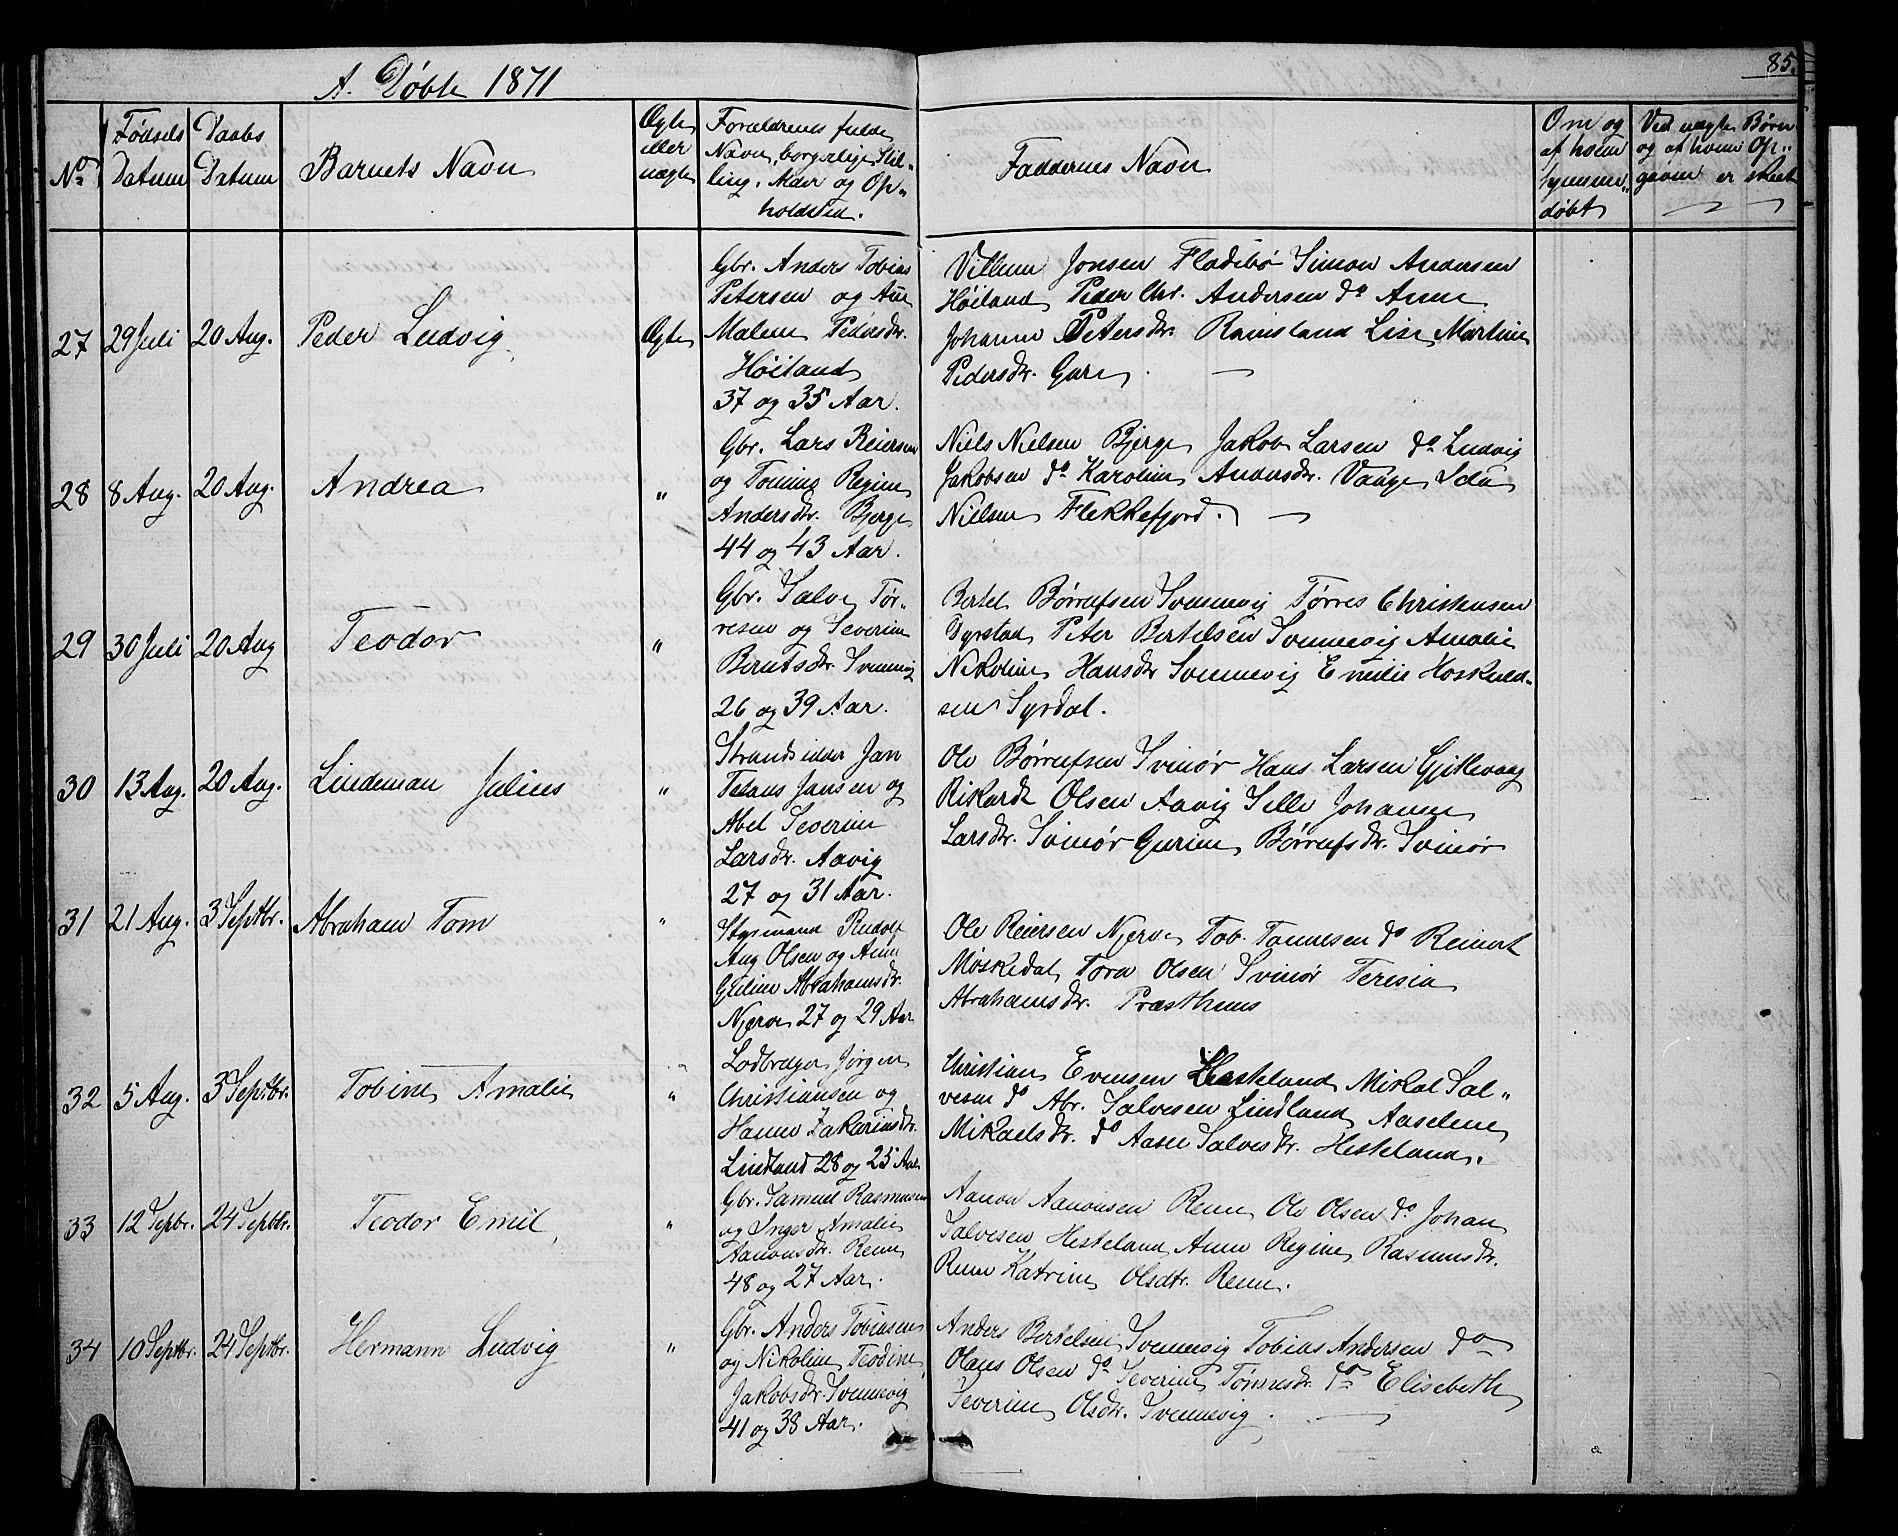 85.
A. Döbte 1871
No
Fødsels Datum
Daabs Datum
Barnets Navn
Ægte eller uægte
Forældrenes fulde
Navn, borgerlige Stil-
ling, Alder og Op-
holdsted.
Faddernes Navn
Om og af hvem hjemme-døbt
Ved uægte Børn og af hvem Op-given er skeet
27 29 Juli 20 Aug. Peder Ludvig Ægte
Gbr. Anders Tobias
Petersen og Ane
Malene Pedersdr.
Høiland
37 og 35 Aar.
Villum Jonsen Fladebø Simon Andersen
Høiland Peder Chr. Andersen do Anne
Johanne Petersdr. Ramsland Lise Martine
Pedersdr. Gare
28 8 Aug. 20 Aug. Andrea "
Gbr. Lars Reiersen
og Tomine Regine
Andersdr. Bjerge
44 og 43 Aar.
Niels Nielsen Bjerge Jakob Larsen do Ludvig
Jakobsen do Karoline Anansdr. Vaage Ida
Nielsen Flekkefjord.
29 30 Juli 20 Aug Teodor "
Gbr. Salve Tør-
resen og Severine
Berntsdr Svennevig
26 og 39 Aar.
Bertel Børrufsen Svennevig Tørres Christensen
Dyrstad Peter Bertelsen Svennevig Amalie
Nikoline Hansdr Svennevig Emilie Hoskuld-
sen Syrdal.
30 13 Aug. 20 Aug. Lindeman Julius "
Strandsidder Jan
Telaus Jansen og
Abel Severine
Larsdr. Aavig
27 og 31 Aar.
Ole Børrufsen Svinør Hans Larsen Gjitlevaag
Rikardt Olsen Aavig Sille Johanne
Larsdr. Svinør Gurine Børrufsdr. Svinør
31 21 Aug. 3 Septbr. Abraham Tom "
Styrmand Rudolf
Aug Olsen og Anne
Guline Abrahamsdr.
Njerve 27 og 29 Aar
Ole Reiersen Njerve Tob. Tønnesen do Reinert
Møskedal Tora Olsen Svinør Teresia
Abrahamsdr. Præsthuus
32 5 Aug. 3 Septbr. Tobine Amalie "
Lodbruger Jørgen
Christiansen og
Hanne Zakariasdr.
Lindland 28 og 25 Aar
Christian Evensen Hesteland Mikal Sal-
vesen do Abr. Salvesen Lindland Aaselene
Mikaelsdr. do Aase Salvesdr. Hesteland.
33 12 Sepbr. 24 Septbr. Teodor Emil "
Gbr. Samuel Rasmusen
og Inger Amalie
Aanonsdr. Renne
48 og 27 Aar.
Aanon Aanonsen Renne Ole Olsen do Johan
Salvesen Hesteland Anne Regine Rasmusdr.
Renne Katrine Olsdtr. Renne.
34 10 Septbr. 24 Septbr. Hermann Ludvig "
Gbr. Anders Tobiasen
og Nikoline Teodine
Jakobsdr. Svennevig
41 og 38 Aar.
Anders Bertelsen Svennevig Tobias Andersen do
Olaus Olsen do Severine Tønnesdr. do Elisebeth
Severine Olsdtr. Svennevig.